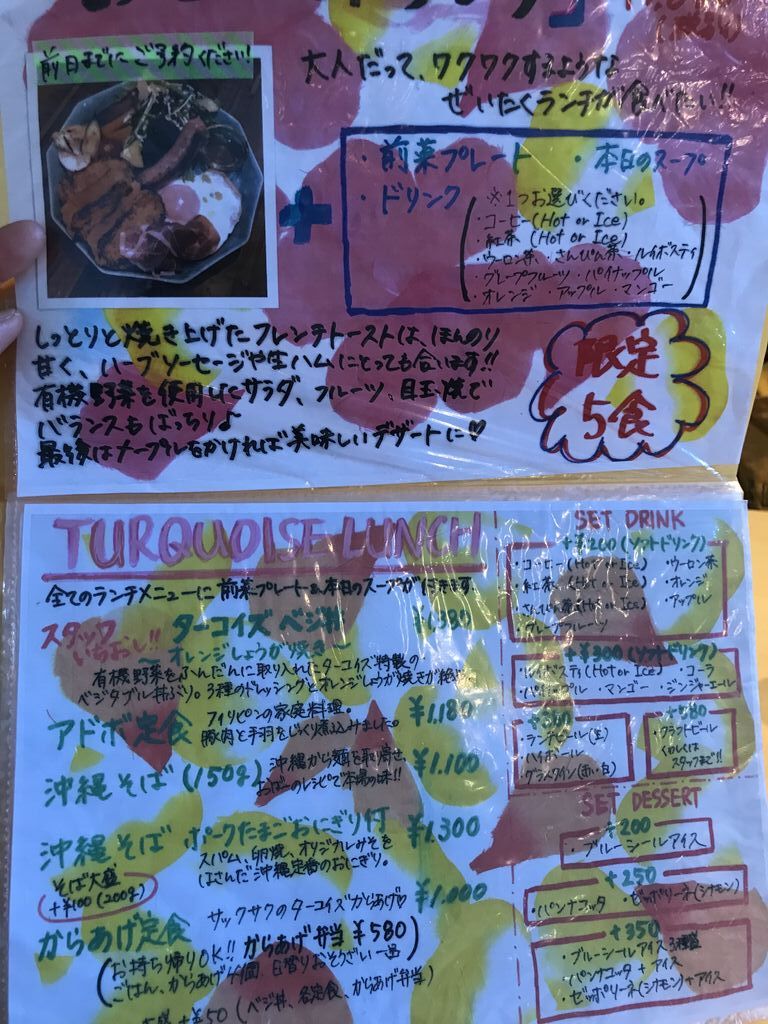 前日までにご予約ください!
大人だって、ワクワクするような
ぜいたくランチが食べたい!!
・前菜プレート ・本日のスープ
・ドリンク ※1つお選びください。
・コーヒー(Hot or Ice)
・紅茶 (Hot or Ice)
・ウーロン茶 ・さんぴん茶 ・ルイボスティ
・グレープフルーツ ・パイナップル
・オレンジ ・アップル ・マンゴー
しっとりと焼き上げたフレンチトーストは、ほんのり
甘く、ハーブソーセージや生ハムにとっても合います!!
有機野菜を使用したサラダ、フルーツ、目玉焼で
バランスもばっちり♪
最後はメープルをかければ美味しいデザートに♡
限定
5食
TURQUOISE LUNCH
全てのランチメニューに前菜プレート&本日のスープが付きます
スタッフ
いちおし!!
ターコイズ ベジ丼 ¥1,380
〜オレンジしょうが焼き〜
有機野菜をふんだんに取り入れたターコイズ特製の
ベジタブル丼ぶり。3種のドレッシングとオレンジしょうが焼きが
アドボ定食 ¥1,180
フィリピンの家庭料理。
豚肉と手羽をじっくり煮込みました。
沖縄そば(150g) ¥1,100
沖縄から麺を取り寄せ、
おばーのレシピで本場の味!!
沖縄そば ポークたまごおにぎり付 ¥1,300
スパム、卵焼、オリジナルみそを
はさんだ沖縄定番のおにぎり。
そば大盛
+¥100(200g)
からあげ定食 ¥1,000
サックサクのターコイズからあげ♡
お持ち帰りOK!! からあげ弁当 ¥580
(ごはん、からあげ4個、日替りおそうざい一品)
大盛 +¥50 (ベジ丼、各定食、からあげ弁当)
SET DRINK
+¥200(ソフトドリンク)
・コーヒー(Hot or Ice) ・ウーロン茶
・紅茶 (Hot or Ice) ・オレンジ
・さんぴん茶(Hot or Ice) ・アップル
・グレープフルーツ
+¥300(ソフトドリンク)
・ルイボスティ(Hot or Ice) ・コーラ
・パイナップル ・マンゴー ・ジンジャーエール
・ランチビール(生)
・ハイボール
・グラスワイン(赤・白)
・クラフトビール
くわしくは
スタッフまで!!
SET DESSERT
+200
・ブルーシールアイス
+250
・パンナコッタ ・ゼッポリーネ(シナモン)
+350
・ブルーシールアイス3種盛
・パンナコッタ + アイス
・ゼッポリーネ(シナモン)+アイス